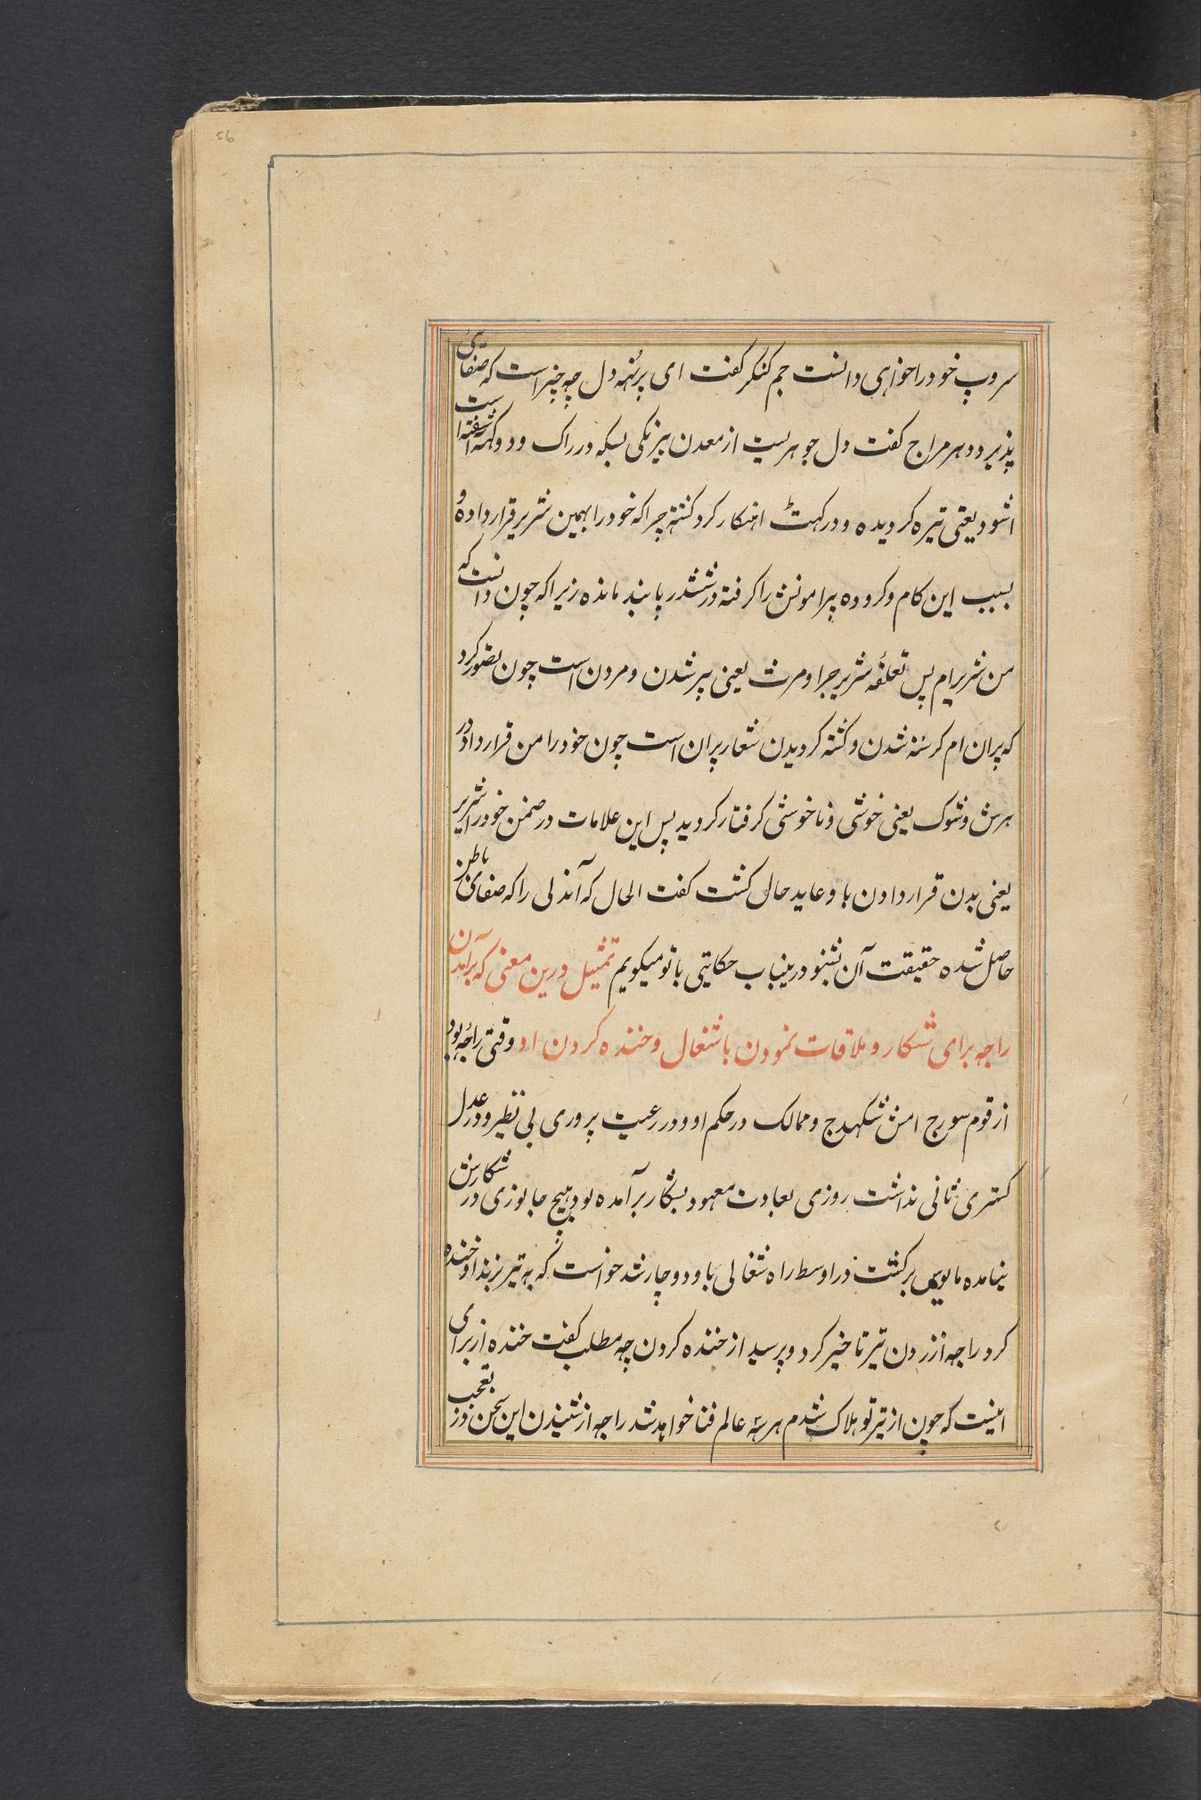 56
سروپ خود را خواهی دانست جم کنکر گفت ای پرنهه دل چه چیز است که صفائی
پذیرد دهرمراج گفت دل جوهریست از معدن بیرنگی بسکه در راک و دوکهه آشفته است
اشود یعنی تیره گردیده و در گهت اهنکار کرد گشته چرا که خود را بهمین شریر قرار داده و
بسبب این کام و کروده پیرامونش را گرفته در ششدر پابند مانده زیرا که چون دانست که
من شریرام پس تعلقه شریر جرا و مرت یعنی پیر شدن و مردن است چون تصور کرد
که پران ام گرسنه شدن و تشنه گردیدن شعار پران است چون خود را من قرار داد در
هرش و شوک یعنی خوشی و ناخوشی گرفتار گردید پس این علامات در ضمن خود را شریر
یعنی بدن قرار دادن باو عاید حال گشت گفت الحال که آن دلی را که صفای باطن
حاصل شده حقیقت آن بشنو درینباب حکایتی باتو میگویم تمثیل درین معنی که برآمدن
راجه برای شکار و ملاقات نمودن با شغال و خنده کردن او وقتی راجه بود
از قوم سورج امش شکهدج و ممالک در حکم او و در رعیت پروری بی نظیر و در عدل
گستری ثانی نداشت روزی بعادت معهود بشکار برآمده بود هیچ جانوری در شکارش
نیامده مایوس برگشت در اوسط راه شغالی باو دوچار شد خواست که به تیر بزند او خنده
کرد راجه از زدن تیر تاخیر کرد و پرسید از خنده کردن چه مطلب گفت خنده از برای
اینست که چون از تیر تو هلاک شدم هر سه عالم فنا خواهد شد راجه از شنیدن این سخن در تعجب